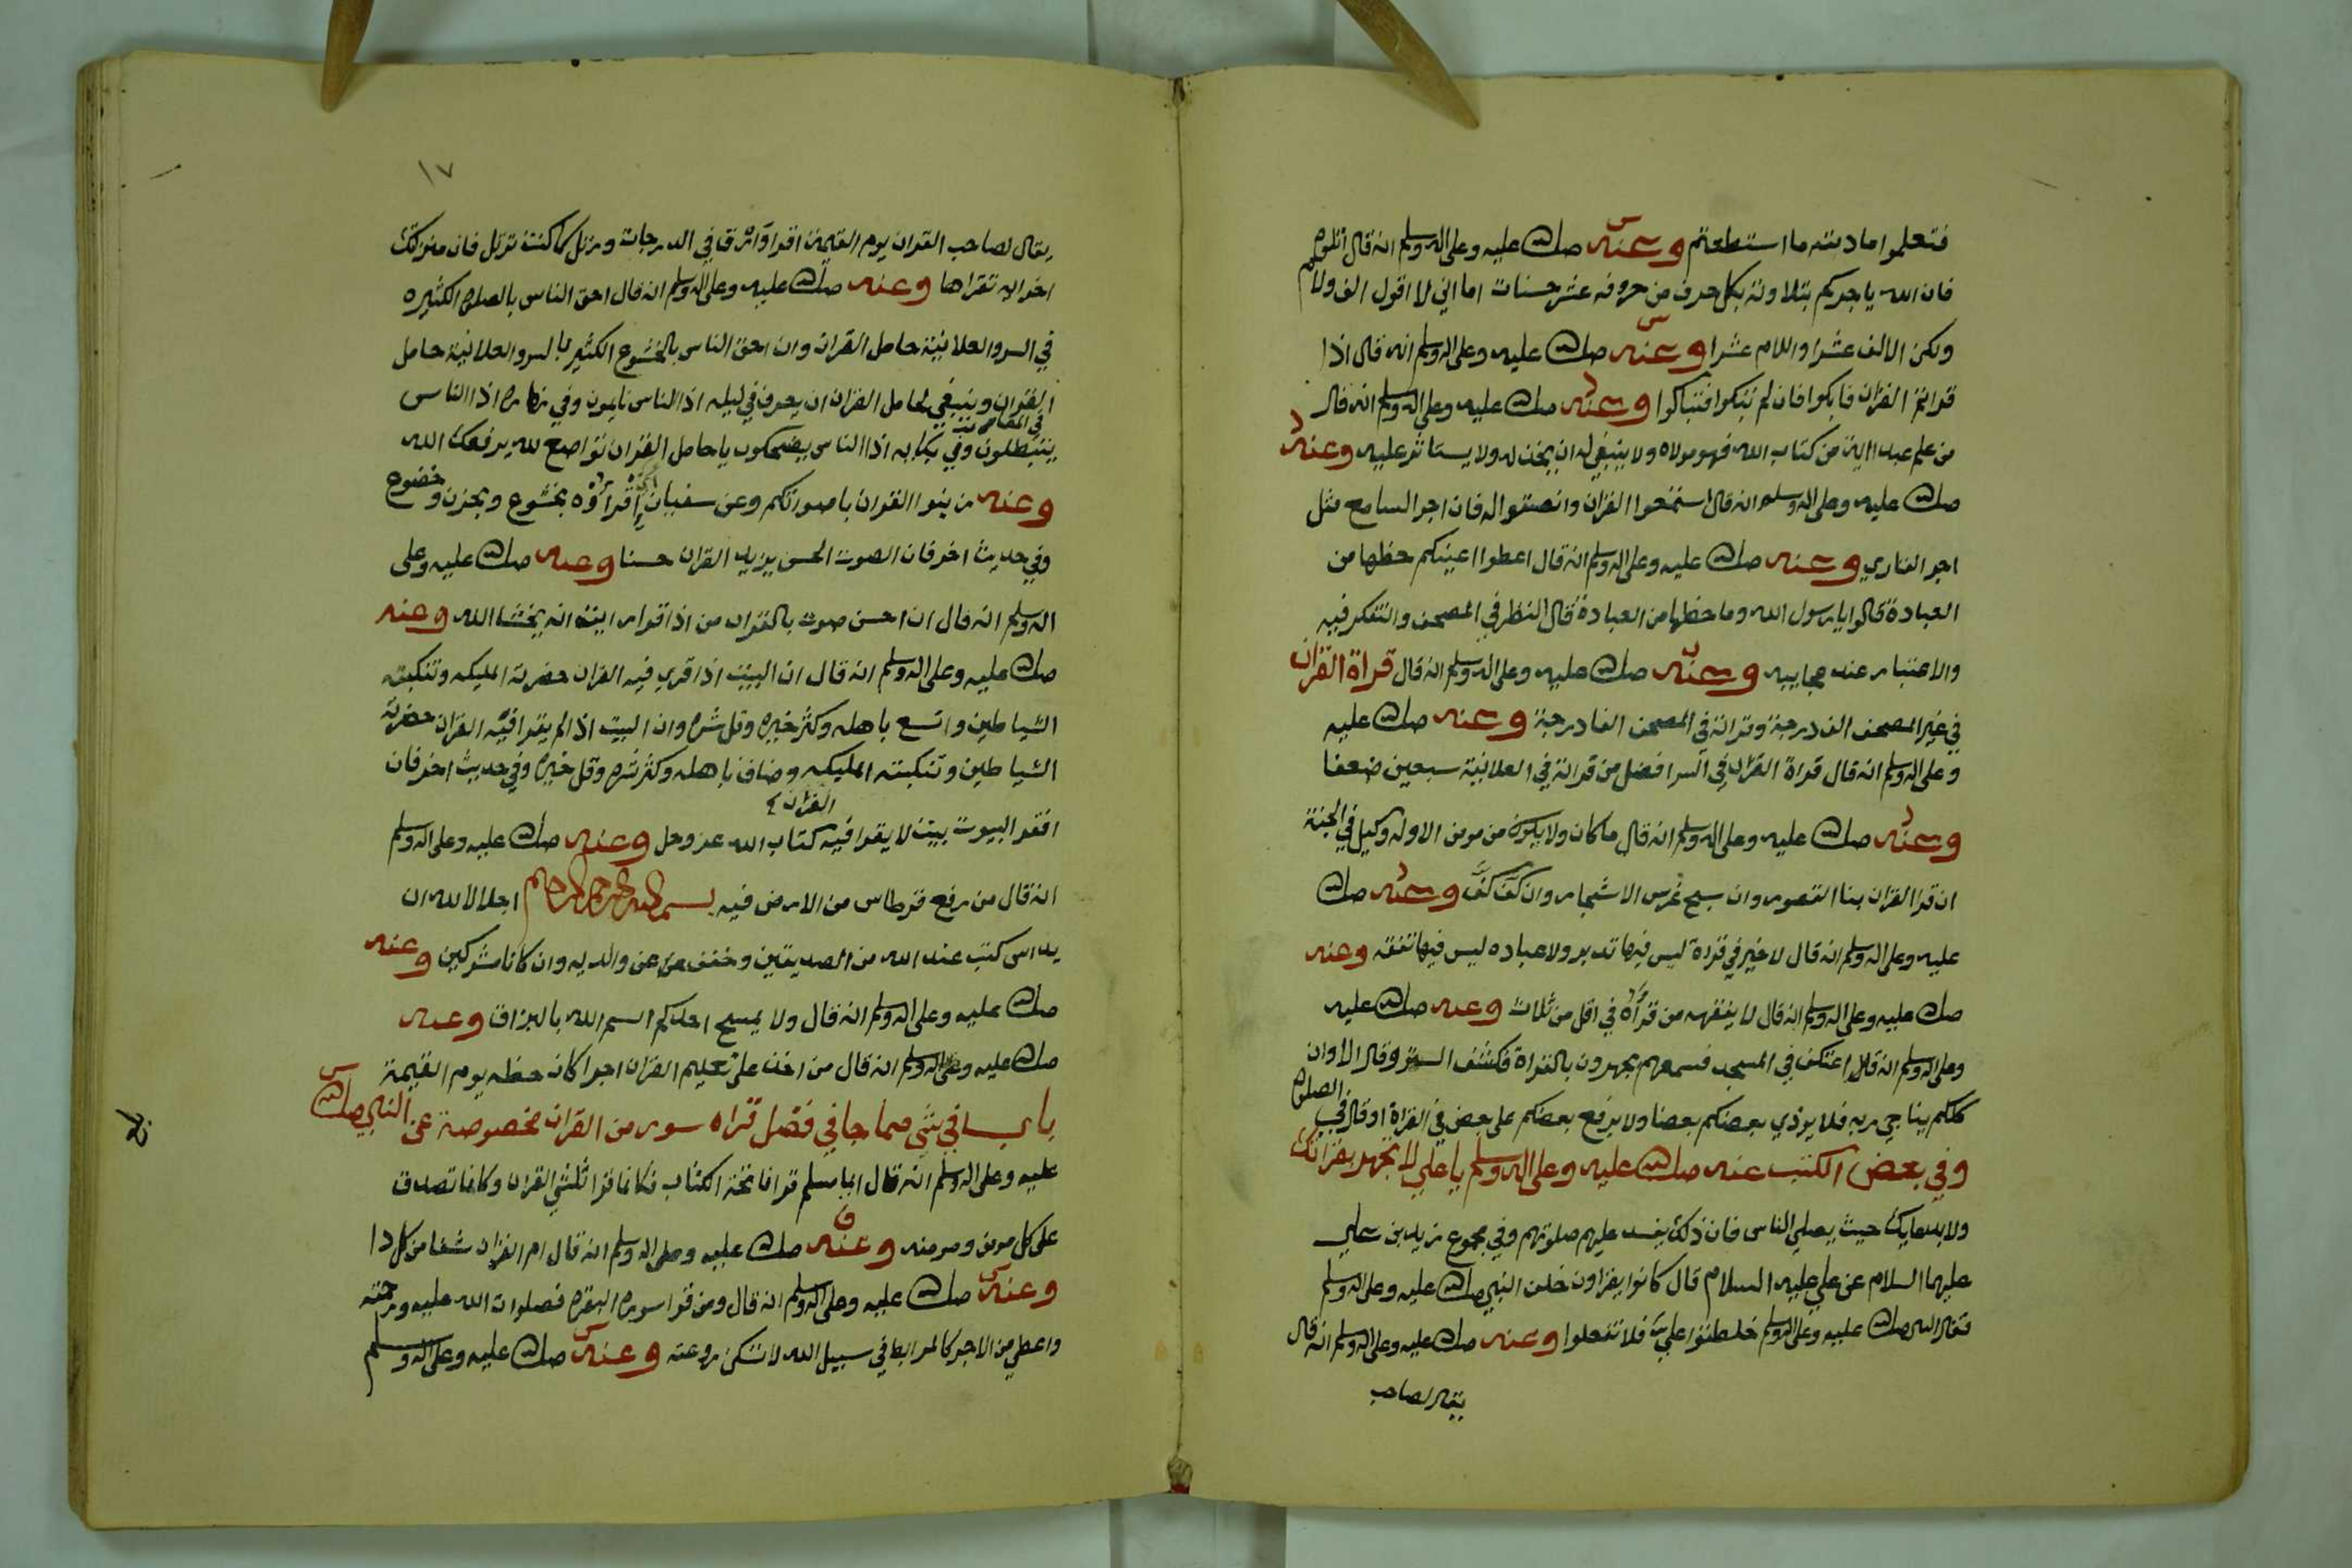 فتعلموا مادبته ما استطعتم وعنه صلى الله عليه وعلى اله وسلم انه قال اتلوه
فان الله ياجركم بتلاوته بكل حرف من حروفه عشر حسنات اما اني لا اقول الف ولام
ولكن الالف عشرا واللام عشرا وعنه صلى الله عليه وعلى اله وسلم انه قال اذا
قراتم القران فابكوا فان لم تبكوا فتباكوا وعنه صلى الله عليه وعلى اله وسلم انه قال
من علم عبدا اية من كتاب الله فهو مولاه ولا ينبغي له ان يخذله ولا يستاثر عليه وعنه
صلى الله عليه وعلى اله وسلم انه قال استمعوا القران وانصتوا له فان اجر السامع مثل
اجر القاري وعنه صلى الله عليه وعلى اله وسلم انه قال اعطوا اعينكم حظها من
العبادة قالوا يا رسول الله وما حظها من العبادة قال النظر في المصحف والتفكر فيه
والاعتبار عند عجايبه وعنه صلى الله عليه وعلى اله وسلم انه قال قراة القران
في غير المصحف الف درجة وقراته في المصحف الفا درجة وعنه صلى الله عليه
وعلى اله وسلم انه قال قراة القران في السر افضل من قراته في العلانية سبعين ضعفا
وعنه صلى الله عليه وعلى اله وسلم انه قال ما كان ولا يكون من مومن الا وله وكيل في الجنة
ان قرا القران بنا القصور وان سبح غرس الاشجار وان كف كف وعنه صلى الله
عليه وعلى اله وسلم انه قال لا خير في قراة ليس فيها تدبر ولا عباده ليس فيها تفقه وعنه
صلى الله عليه وعلى اله وسلم انه قال لا يفقهه من قراه في اقل من ثلاث وعنه صلى الله عليه
وعلى اله وسلم انه اعتكف في المسجد فسمعهم يجهرون بالقراة فكشف الستر وقال الا وان
كلكم يناجي ربه فلا يوذي بعضكم بعضا ولا يرفع بعضكم على بعض في القراة او قال في الصلوة
وفي بعض الكتب عنه صلى الله عليه وعلى اله وسلم يا علي لا تجهر بقراتك
ولا بدعايك حيث يصلي الناس فان ذلك يفسد عليهم صلوتهم وفي مجموع زيد بن علي
عليهما السلام عن علي عليه السلام قال كانوا يقراون خلف النبي صلى الله عليه وعلى اله وسلم
فقال النبي صلى الله عليه وعلى اله وسلم خلطتم علي فلا تفعلوا وعنه صلى الله عليه وعلى اله وسلم انه قال
يقال لصاحب
١٧
يقال لصاحب القران يوم القيمة اقرا وارق في الدرجات ورتل كما كنت ترتل فان منزلتك
اخر اية تقراها وعنه صلى الله عليه وعلى اله وسلم انه قال احق الناس بالصلوة الكثيره
في السر والعلانية حامل القران وان احق الناس بالخشوع الكثير بالسر والعلانية حامل
القران وينبغي لحامل القران ان يعرف في ليله اذا الناس نايمون وفي نهاره اذا الناس
يتبطلون وفي بكايه اذا الناس يضحكون يا حامل القران تواضع لله يرفعك الله
وعنه زينوا القران باصواتكم وعن سفيان اقراوه بخشوع وبحزن وخضوع
وفي حديث اخر فان الصوت الحسن يزيد القران حسنا وعنه صلى الله عليه وعلى
اله وسلم انه قال ان احسن صوت بالقران من اذا قرا رايت انه يخشا الله وعنه
صلى الله عليه وعلى اله وسلم انه قال ان البيت اذا قري فيه القران حضرته المليكه وتنكبته
الشياطين واتسع باهله وكثر خيره وقل شره وان البيت اذا لم يقرا فيه القران حضرته
الشياطين وتنكبته المليكه وضاق باهله وكثر شره وقل خيره وفي حديث اخر فان
افقر البيوت بيت لا يقرا فيه كتاب الله عز وجل وعنه صلى الله عليه وعلى اله وسلم
القران
انه قال من رفع قرطاس من الارض فيه بسم الله الرحمن الرحيم اجلالا لله ان
يداس كتب عند الله من الصديقين وخفف عن والديه وان كانا مشركين وعنه
صلى الله عليه وعلى اله وسلم انه قال ولا يمسح احدكم اسم الله بالبزاق وعنه
صلى الله عليه وعلى اله وسلم انه قال من اخذ على تعليم القران اجرا كان حظه يوم القيمة
باب في شي مما جا في فضل قراه سور من القران مخصوصة عن النبي صلى الله
عليه وعلى اله وسلم انه قال ايما مسلم قرا فاتحة الكتاب فكانما قرا ثلثي القران وكانما تصدق
على كل مومن ومومنه وعنه صلى الله عليه وعلى اله وسلم انه قال ام القران شفا من كل دا
وعنه صلى الله عليه وعلى اله وسلم انه قال ومن قرا سوره البقره فصلوات الله عليه ورحمته
واعطي من الاجر كالمرابط في سبيل الله لا تسكن روعته وعنه صلى الله عليه وعلى اله وسلم